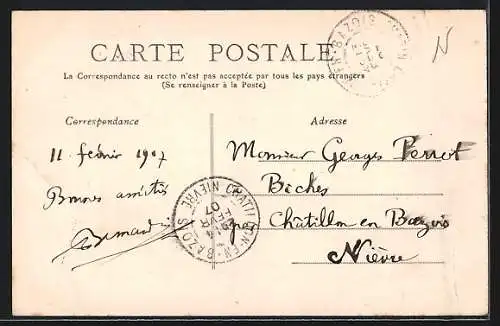 CARTE POSTALE
La Correspondance au recto n'est pas acceptée par tous les pays étrangers
(Se renseigner à la Poste)
Correspondance
Adresse
11 février 1907
Bonnes amitiés
Monsieur Georges Perrot
Bèches
Châtillon en Bazois
Nièvre
CHATILLON-EN-BAZOIS
NIEVRE
07
N